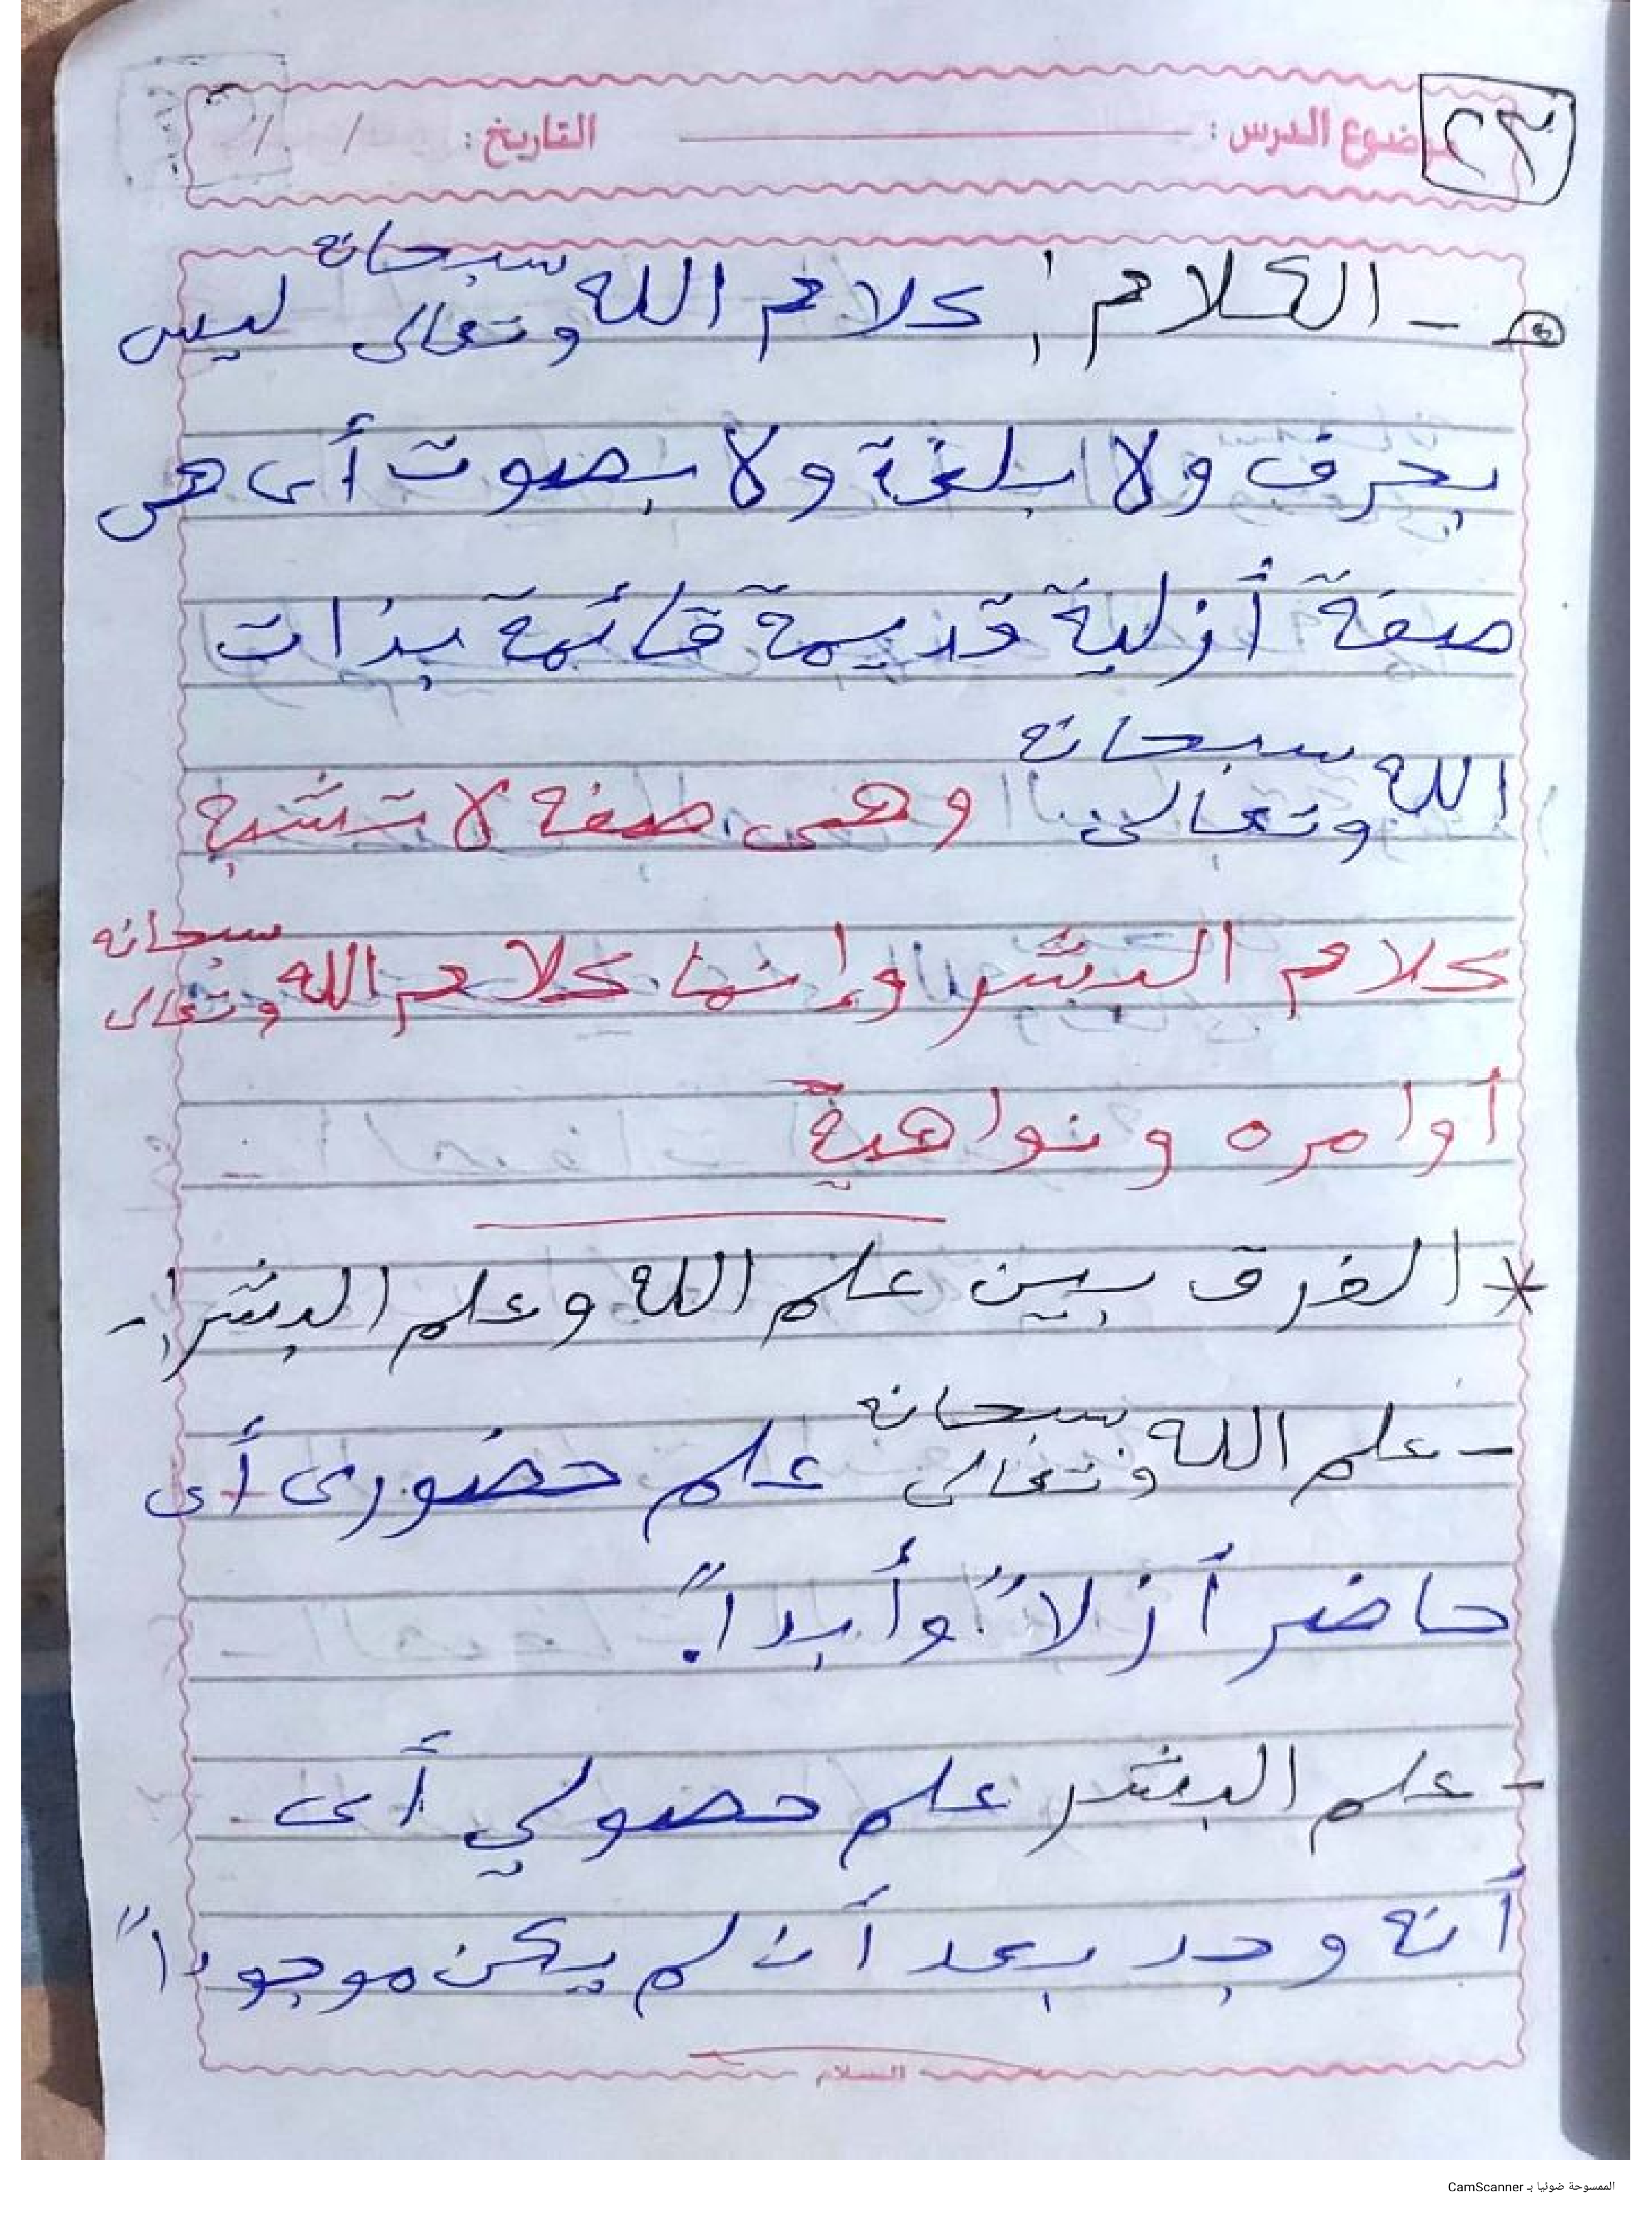 ٢٣
موضوع الدرس :
التاريخ : / /
٥ - الكلام : كلام الله سبحانه وتعالى ليس
بحرف ولا بلغة ولا بصوت أى هى
صفة أزلية قديمة قائمة بذات
الله سبحانه وتعالى وهى صفة لا تشبه
كلام البشر وإنما كلام الله سبحانه وتعالى
أوامره ونواهية
* الفرق بين علم الله وعلم البشر :-
- علم الله سبحانه وتعالى علم حضورى أى
حاضر أزلاً وأبداً .
- علم البشر علم حصولي أى
أنه وجد بعد أن لم يكن موجوداً
السلام
الممسوحة ضوئيا بـ CamScanner